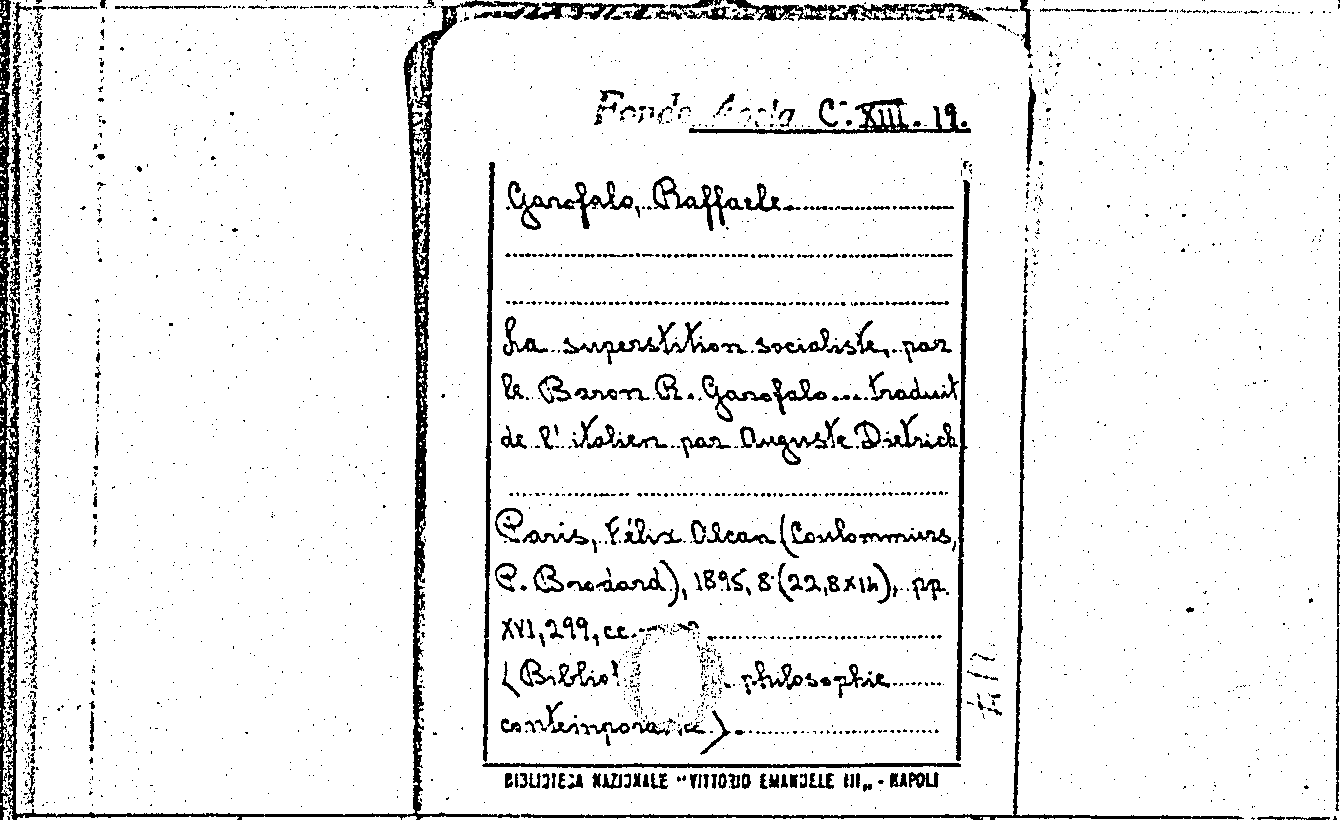 Fondo C. XIII. 19.
Garofalo, Raffaele
La superstition socialiste, par
le Baron R. Garofalo... traduit
de l'italien par Auguste Dietrich
Paris, Félix Alcan (Coulommiers,
P. Brodard), 1895, 8° (22,8x14), pp.
XVI, 299, cc.
(Bibliot philosophie
contemporaine).
BIBLIOTECA NAZIONALE "VITTORIO EMANUELE III„ - NAPOLI